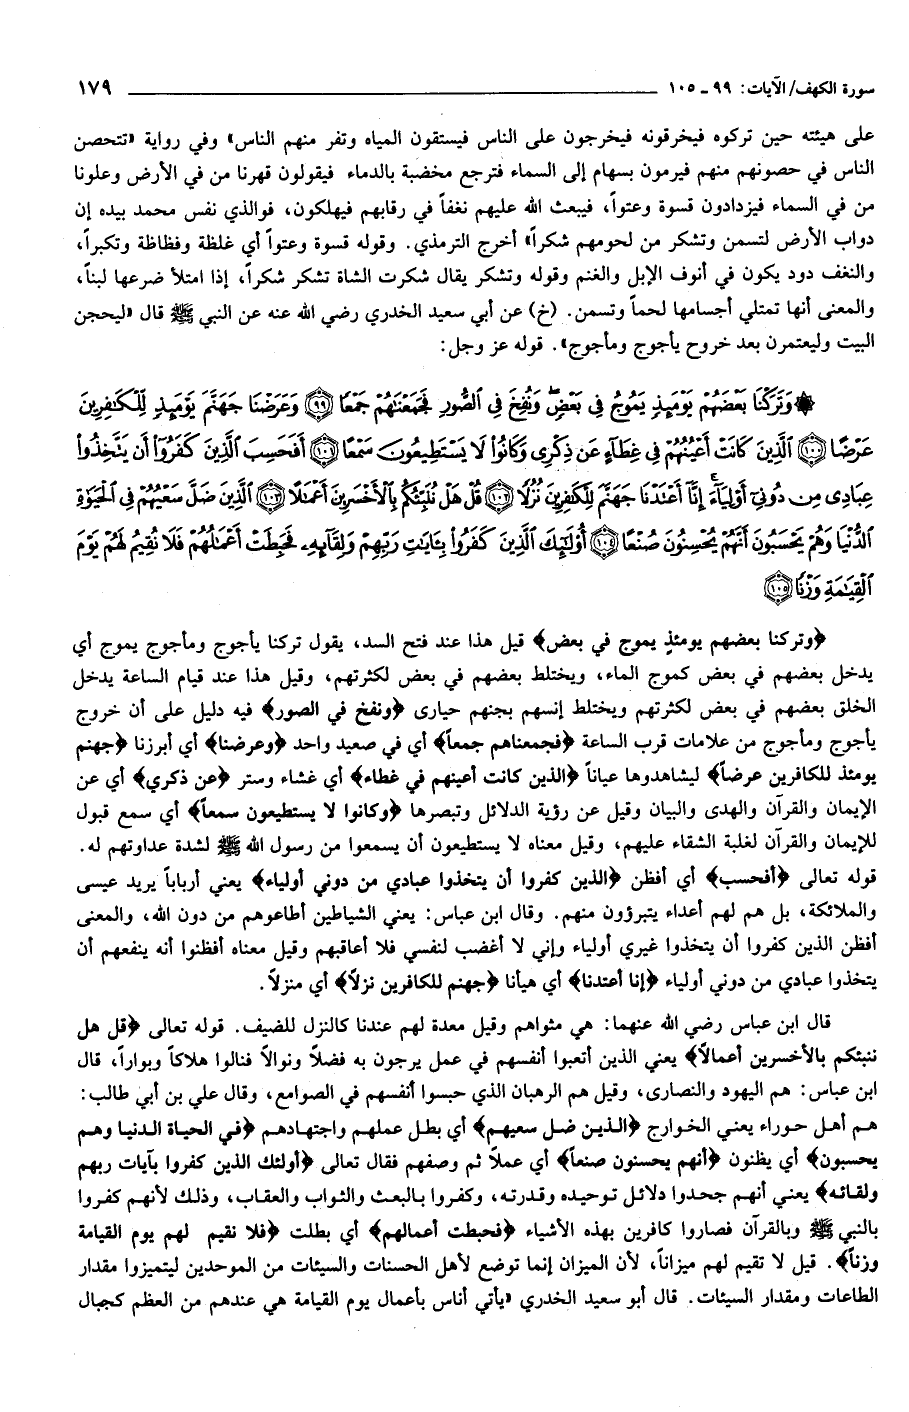 سورة الكهف/ الآيات: ٩٩ ـ ١٠٥ ١٧٩
على هيئته حين تركوه فيخرقونه فيخرجون على الناس فيستقون المياه وتفر منهم الناس» وفي رواية «تتحصن
الناس في حصونهم منهم فيرمون بسهام إلى السماء فترجع مخضبة بالدماء فيقولون قهرنا من في الأرض وعلونا
من في السماء فيزدادون قسوة وعتواً، فيبعث الله عليهم نغفاً في رقابهم فيهلكون، فوالذي نفس محمد بيده إن
دواب الأرض لتسمن وتشكر من لحومهم شكراً» أخرج الترمذي. وقوله قسوة وعتواً أي غلظة وفظاظة وتكبراً،
والنغف دود يكون في أنوف الإبل والغنم وقوله وتشكر يقال شكرت الشاة تشكر شكراً، إذا امتلأ ضرعها لبناً،
والمعنى أنها تمتلي أجسامها لحماً وتسمن. (خ) عن أبي سعيد الخدري رضي الله عنه عن النبي ﷺ قال «ليحجن
البيت وليعتمرن بعد خروح يأجوج ومأجوج». قوله عز وجل:
۞ وَتَرَكْنَا بَعْضَهُمْ يَوْمَئِذٍ يَمُوجُ فِي بَعْضٍ وَنُفِخَ فِي الصُّورِ فَجَمَعْنَاهُمْ جَمْعًا ٩٩ وَعَرَضْنَا جَهَنَّمَ يَوْمَئِذٍ لِّلْكَافِرِينَ
عَرْضًا ١٠٠ الَّذِينَ كَانَتْ أَعْيُنُهُمْ فِي غِطَاءٍ عَن ذِكْرِي وَكَانُوا لَا يَسْتَطِيعُونَ سَمْعًا ١٠١ أَفَحَسِبَ الَّذِينَ كَفَرُوا أَن يَتَّخِذُوا
عِبَادِي مِن دُونِي أَوْلِيَاءَ إِنَّا أَعْتَدْنَا جَهَنَّمَ لِلْكَافِرِينَ نُزُلًا ١٠٢ قُلْ هَلْ نُنَبِّئُكُم بِالْأَخْسَرِينَ أَعْمَالًا ١٠٣ الَّذِينَ ضَلَّ سَعْيُهُمْ فِي الْحَيَاةِ
الدُّنْيَا وَهُمْ يَحْسَبُونَ أَنَّهُمْ يُحْسِنُونَ صُنْعًا ١٠٤ أُولَئِكَ الَّذِينَ كَفَرُوا بِآيَاتِ رَبِّهِمْ وَلِقَائِهِ فَحَبِطَتْ أَعْمَالُهُمْ فَلَا نُقِيمُ لَهُمْ يَوْمَ
الْقِيَامَةِ وَزْنًا ١٠٥
﴿وتركنا بعضهم يومئذٍ يموج في بعض﴾ قيل هذا عند فتح السد، يقول تركنا يأجوج ومأجوج يموج أي
يدخل بعضهم في بعض كموج الماء، ويختلط بعضهم في بعض لكثرتهم، وقيل هذا عند قيام الساعة يدخل
الخلق بعضهم في بعض لكثرتهم ويختلط إنسهم بجنهم حيارى ﴿ونفخ في الصور﴾ فيه دليل على أن خروج
يأجوج ومأجوج من علامات قرب الساعة ﴿فجمعناهم جمعاً﴾ أي في صعيد واحد ﴿وعرضنا﴾ أي أبرزنا ﴿جهنم
يومئذ للكافرين عرضاً﴾ ليشاهدوها عياناً ﴿الذين كانت أعينهم في غطاء﴾ أي غشاء وستر ﴿عن ذكري﴾ أي عن
الإيمان والقرآن والهدى والبيان وقيل عن رؤية الدلائل وتبصرها ﴿وكانوا لا يستطيعون سمعاً﴾ أي سمع قبول
للإيمان والقرآن لغلبة الشقاء عليهم، وقيل معناه لا يستطيعون أن يسمعوا من رسول الله ﷺ لشدة عداوتهم له.
قوله تعالى ﴿أفحسب﴾ أي أفظن ﴿الذين كفروا أن يتخذوا عبادي من دوني أولياء﴾ يعني أرباباً يريد عيسى
والملائكة، بل هم لهم أعداء يتبرؤون منهم. وقال ابن عباس: يعني الشياطين أطاعوهم من دون الله، والمعنى
أفظن الذين كفروا أن يتخذوا غيري أولياء وإني لا أغضب لنفسي فلا أعاقبهم وقيل معناه أفظنوا أنه ينفعهم أن
يتخذوا عبادي من دوني أولياء ﴿إنا أعتدنا﴾ أي هيأنا ﴿جهنم للكافرين نزلاً﴾ أي منزلاً.
قال ابن عباس رضي الله عنهما: هي مثواهم وقيل معدة لهم عندنا كالنزل للضيف. قوله تعالى ﴿قل هل
ننبئكم بالأخسرين أعمالاً﴾ يعني الذين أتعبوا أنفسهم في عمل يرجون به فضلاً ونوالاً فنالوا هلاكاً وبواراً، قال
ابن عباس: هم اليهود والنصارى، وقيل هم الرهبان الذي حبسوا أنفسهم في الصوامع، وقال علي بن أبي طالب:
هم أهل حوراء يعني الخوارج ﴿الذين ضل سعيهم﴾ أي بطل عملهم واجتهادهم ﴿في الحياة الدنيا وهم
يحسبون﴾ أي يظنون ﴿أنهم يحسنون صنعاً﴾ أي عملاً ثم وصفهم فقال تعالى ﴿أولئك الذين كفروا بآيات ربهم
ولقائه﴾ يعني أنهم جحدوا دلائل توحيده وقدرته، وكفروا بالبعث والثواب والعقاب، وذلك لأنهم كفروا
بالنبي ﷺ وبالقرآن فصاروا كافرين بهذه الأشياء ﴿فحبطت أعمالهم﴾ أي بطلت ﴿فلا نقيم لهم يوم القيامة
وزناً﴾. قيل لا تقيم لهم ميزاناً، لأن الميزان إنما توضع لأهل الحسنات والسيئات من الموحدين ليتميزوا مقدار
الطاعات ومقدار السيئات. قال أبو سعيد الخدري «يأتي أناس بأعمال يوم القيامة هي عندهم من العظم كجبال